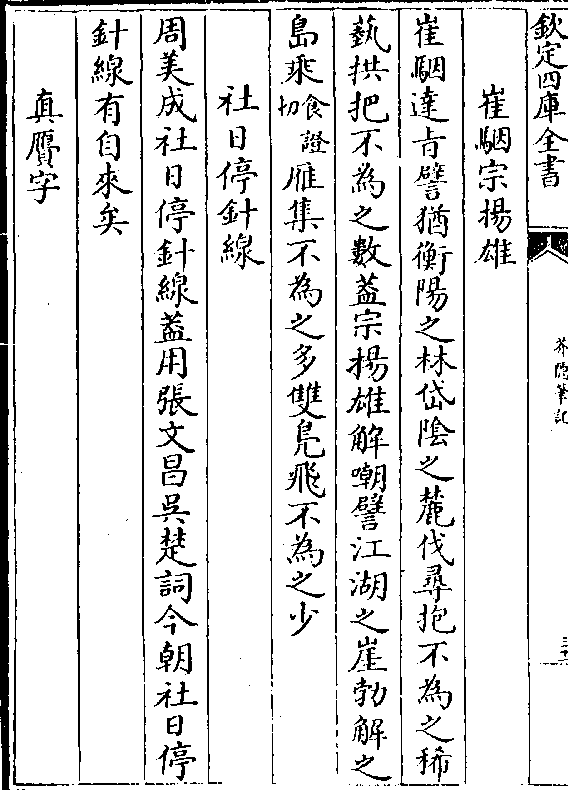 欽定四庫全書
芥隱筆記
崔駰宗揚雄
崔駰達旨譬猶衡陽之林岱陰之麓伐尋抱不為之稀
蓺拱把不為之數葢宗揚雄解嘲譬江湖之崖勃解之
島乘食證切雁集不為之多雙鳧飛不為之少
社日停針線
周美成社日停針線葢用張文昌吳楚詞今朝社日停
針線有自來矣
真贗字